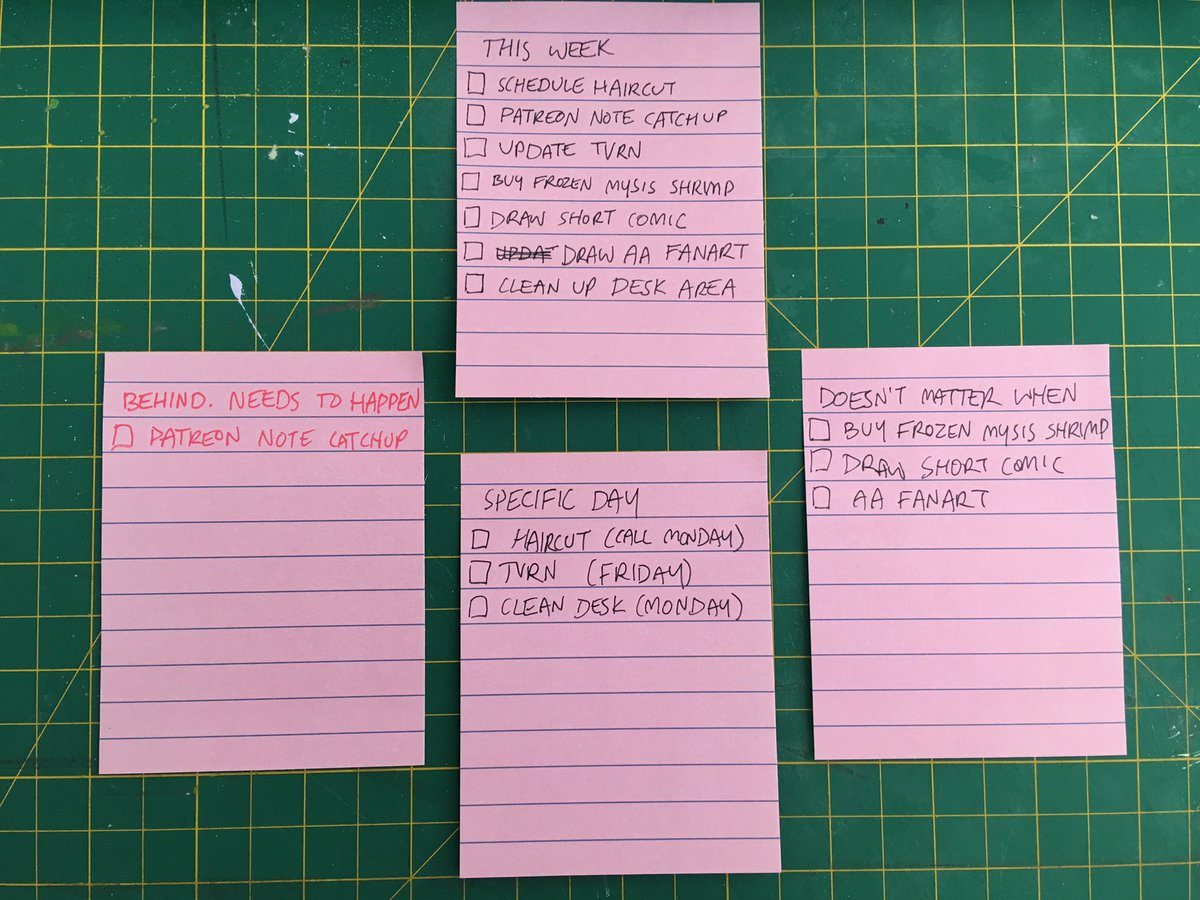 THIS WEEK
SCHEDULE HAIRCUT
PATREON NOTE CATCHUP
UPDATE TVRN
BUY FROZEN MYSIS SHRIMP
DRAW SHORT COMIC
UPDAT DRAW AA FANART
CLEAN UP DESK AREA
BEHIND. NEEDS TO HAPPEN
PATREON NOTE CATCHUP
SPECIFIC DAY
HAIRCUT (CALL MONDAY)
TVRN (FRIDAY)
CLEAN DESK (MONDAY)
DOESN'T MATTER WHEN
BUY FROZEN MYSIS SHRIMP
DRAW SHORT COMIC
AA FANART